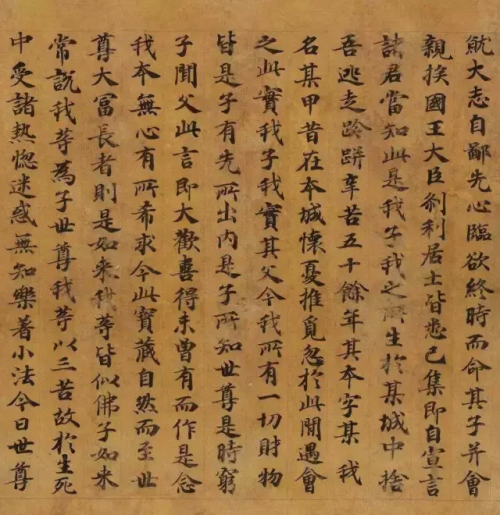 就大志自鄙先心臨欲終時而命其子并會
親族國王大臣剎利居士皆悉已集即自宣言
諸君當知此是我子我之所生於某城中捨
吾逃走跉跰辛苦五十餘年其本字某我
名某甲昔在本城懷憂推覓忽於此間遇會
之此實我子我實其父今我所有一切財物
皆是子有先所出內是子所知世尊是時窮
子聞父此言即大歡喜得未曾有而作是念
我本無心有所希求今此寶藏自然而至世
尊大富長者則是如來我等皆似佛子如來
常說我等為子世尊我等以三苦故於生死
中受諸熱惱迷惑無知樂著小法今日世尊